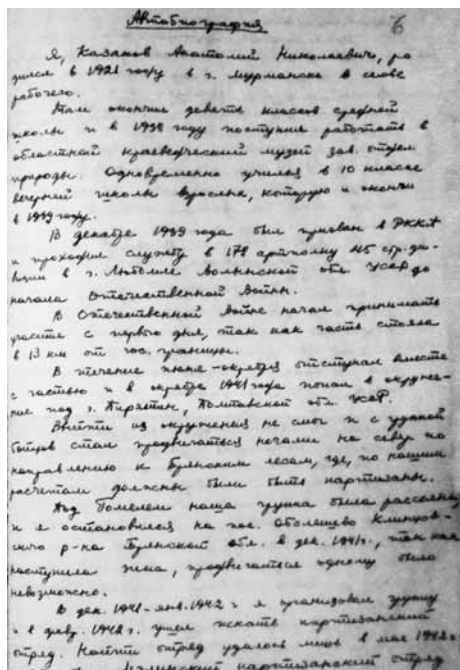 Автобиография
6
Я, Казаков Анатолий Николаевич, ро
дился в 1921 году в г. Мурманске в семье
рабочего.
Там окончил девять классов средней
школы и в 1938 году поступил работать в
областной краеведческий музей зав. отделом
природы. Одновременно учился в 10 классе
вечерней школы взрослых, которую и окончил
в 1939 году.
В декабре 1939 года был призван в РККА
и проходил службу в 178 артполку 45 стр. ди-
визии в г. Любомле Волынской обл. УССР до
начала Отечественной Войны.
В Отечественной Войне начал принимать
участие с первого дня, так как часть стояла
в 13 км от гос. границы.
В течение июня-октября отступал вместе
с частью и в октябре 1941 года попал в окруже-
ние под г. Пирятин, Полтавской обл. УССР.
Выйти из окружения не смог и с группой
бойцов стал продвигаться ночами на север по
направлению к Брянским лесам, где, по нашим
расчетам должны были быть партизаны.
Под Гомелем наша группа была рассеяна,
и я остановился на пос. Оболешево Клинцов-
ского р-на Брянской обл. в дек. 1941г., так как
наступила зима, продвигаться одному было
невозможно.
В дек. 1941-янв. 1942 г я организовал группу
и в февр. 1942 г. ушел искать партизанский
отряд. Найти отряд удалось лишь в мае 1942г.
партизанский отряд